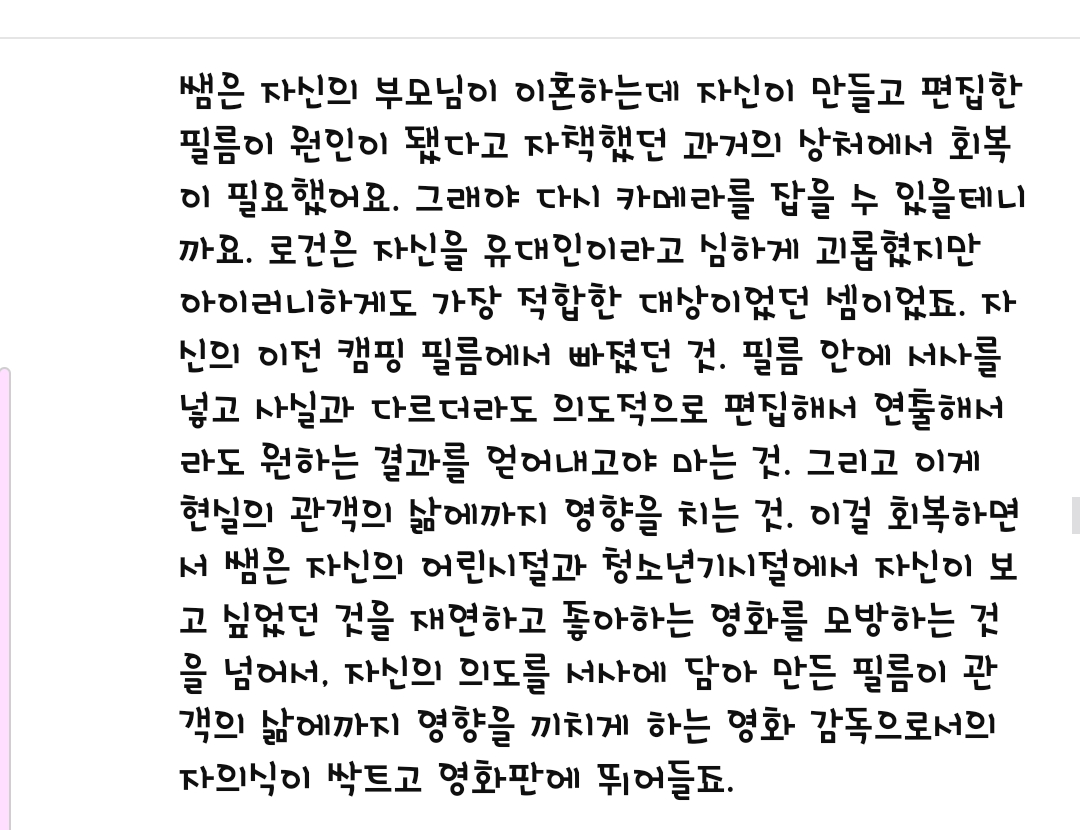 쌤은 자신의 부모님이 이혼하는데 자신이 만들고 편집한
필름이 원인이 됐다고 자책했던 과거의 상처에서 회복
이 필요했어요. 그래야 다시 카메라를 잡을 수 있을테니
까요. 로건은 자신을 유대인이라고 심하게 괴롭혔지만
아이러니하게도 가장 적합한 대상이었던 셈이었죠. 자
신의 이전 캠핑 필름에서 빠졌던 것. 필름 안에 서사를
넣고 사실과 다르더라도 의도적으로 편집해서 연출해서
라도 원하는 결과를 얻어내고야 마는 것. 그리고 이게
현실의 관객의 삶에까지 영향을 치는 것. 이걸 회복하면
서 쌤은 자신의 어린시절과 청소년기시절에서 자신이 보
고 싶었던 것을 재연하고 좋아하는 영화를 모방하는 것
을 넘어서, 자신의 의도를 서사에 담아 만든 필름이 관
객의 삶에까지 영향을 끼치게 하는 영화 감독으로서의
자의식이 싹트고 영화판에 뛰어들죠.